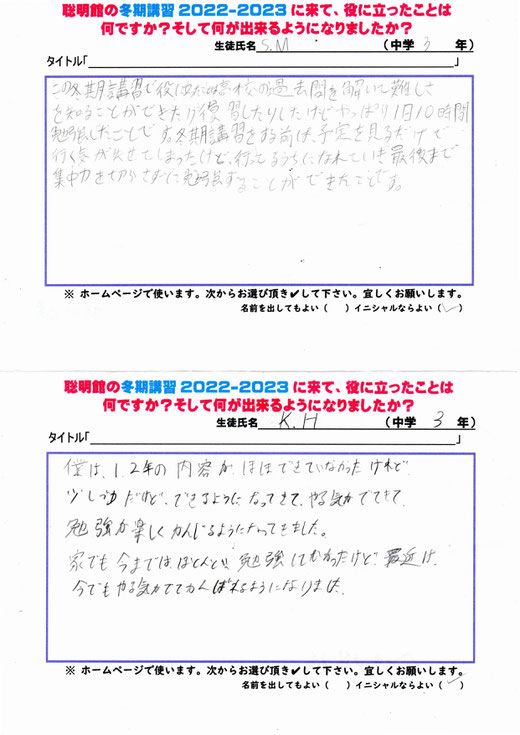 聡明館の冬期講習2022-2023に来て、役に立ったことは
何ですか？そして何が出来るようになりましたか？
生徒氏名 S.M （中学 3 年）
タイトル「 」
この冬期講習で役に立ったのは高校の過去問を解いて難しさ
を知ることができたり復習したりしたけどやっぱり1日10時間
勉強したことです。冬期講習をする前は、予定を見るだけで
行く気が失せてしまったけど、行ってるうちになれていき最後まで
集中力を切らさずに勉強することができたことです。
※ ホームページで使います。次からお選び頂き✔して下さい。宜しくお願いします。
名前を出してもよい（ ）イニシャルならよい（✓）
聡明館の冬期講習2022-2023に来て、役に立ったことは
何ですか？そして何が出来るようになりましたか？
生徒氏名 K.H （中学 3 年）
タイトル「 」
僕は、1、2年の内容が、ほぼできていなかったけれど、
少しづつだけど、できるようになってきて、やる気がでてきて、
勉強が楽しくかんじるようになってきました。
家でも今までは、ほとんど、勉強してなかったけど、最近は、
今でもやる気がでてがんばれるようになりました。
※ ホームページで使います。次からお選び頂き✔して下さい。宜しくお願いします。
名前を出してもよい（ ）イニシャルならよい（✓）